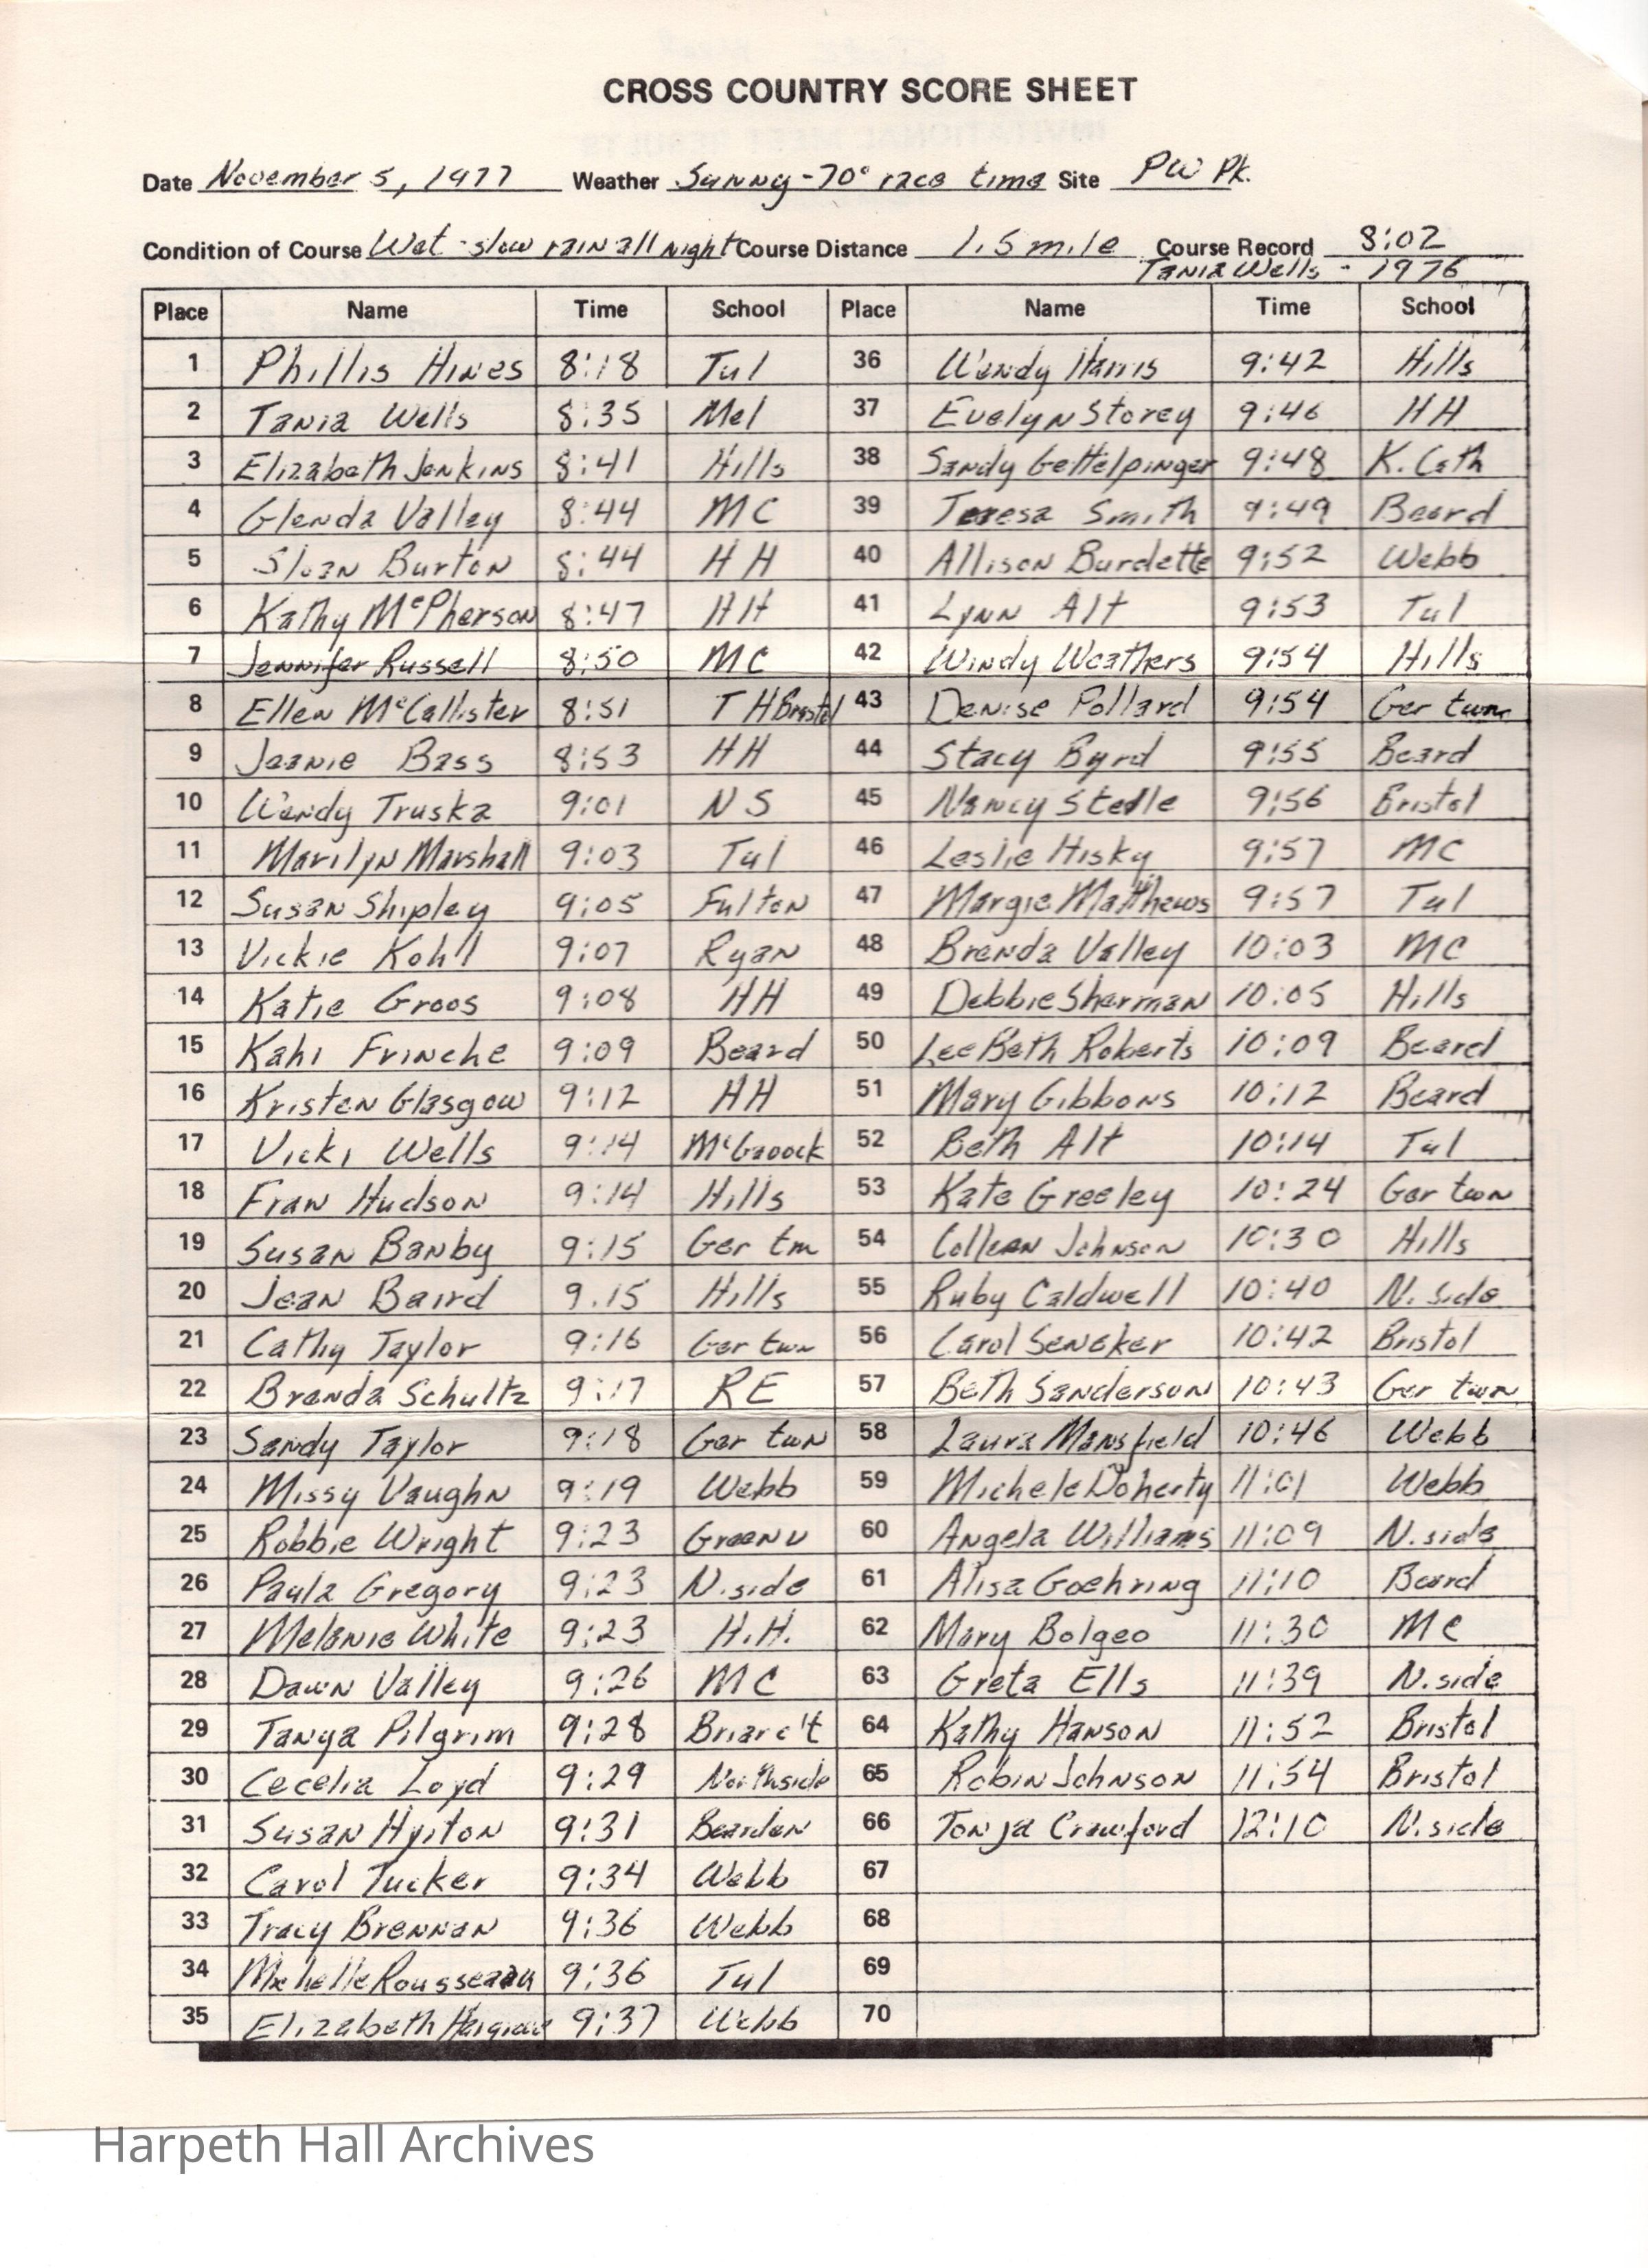 CROSS COUNTRY SCORE SHEET
Date November 5, 1977 Weather Sunny - 70° race time Site PW Pk.
Condition of Course Wet - slow rain all night Course Distance 1.5 mile Course Record 8:02
Tania Wells - 1976
Place Name Time School Place Name Time School
1 Phillis Hines 8:18 Tul 36 Wendy Harris 9:42 Hills
2 Tania Wells 8:35 Mel 37 Evelyn Storey 9:46 HH
3 Elizabeth Jenkins 8:41 Hills 38 Sandy Gettelpinger 9:48 K. Cath
4 Glenda Valley 8:44 MC 39 Teresa Smith 9:49 Beard
5 Sloan Burton 8:44 HH 40 Allison Burdette 9:52 Webb
6 Kathy McPherson 8:47 HH 41 Lynn Alt 9:53 Tul
7 Jennifer Russell 8:50 MC 42 Windy Weathers 9:54 Hills
8 Ellen McCallister 8:51 T H Bristol 43 Denise Pollard 9:54 Ger twn
9 Jeanie Bass 8:53 HH 44 Stacy Byrd 9:55 Beard
10 Wendy Truska 9:01 NS 45 Nancy Stedle 9:56 Bristol
11 Marilyn Marshall 9:03 Tul 46 Leslie Hisky 9:57 MC
12 Susan Shipley 9:05 Fulton 47 Margie Matthews 9:57 Tul
13 Vickie Kohll 9:07 Ryan 48 Brenda Valley 10:03 MC
14 Katie Groos 9:08 HH 49 Debbie Sherman 10:05 Hills
15 Kahi Frinche 9:09 Beard 50 Lee Beth Roberts 10:09 Beard
16 Kristen Glasgow 9:12 HH 51 Mary Gibbons 10:12 Beard
17 Vicki Wells 9:14 McGavock 52 Beth Alt 10:14 Tul
18 Fran Hudson 9:14 Hills 53 Kate Greeley 10:24 Ger twn
19 Susan Banby 9:15 Ger tm 54 Colleen Johnson 10:30 Hills
20 Jean Baird 9.15 Hills 55 Ruby Caldwell 10:40 N. side
21 Cathy Taylor 9:16 Ger twn 56 Carol Seneker 10:42 Bristol
22 Brenda Schultz 9:17 RE 57 Beth Sanderson 10:43 Ger twn
23 Sandy Taylor 9:18 Ger twn 58 Laura Mansfield 10:46 Webb
24 Missy Vaughn 9:19 Webb 59 Michele Doherty 11:01 Webb
25 Robbie Wright 9:23 Green V 60 Angela Williams 11:09 N. side
26 Paula Gregory 9:23 N. side 61 Alisa Goehring 11:10 Beard
27 Melanie White 9:23 H.H. 62 Mary Bolgeo 11:30 MC
28 Dawn Valley 9:26 MC 63 Greta Ells 11:39 N. side
29 Tanya Pilgrim 9:28 Briarc't 64 Kathy Hanson 11:52 Bristol
30 Cecelia Loyd 9:29 Northside 65 Robin Johnson 11:54 Bristol
31 Susan Hylton 9:31 Bearden 66 Tonja Crawford 12:10 N. side
32 Carol Tucker 9:34 Webb 67
33 Tracy Brennan 9:36 Webb 68
34 Michelle Rousseau 9:36 Tul 69
35 Elizabeth 9:37 Webb 70
Harpeth Hall Archives